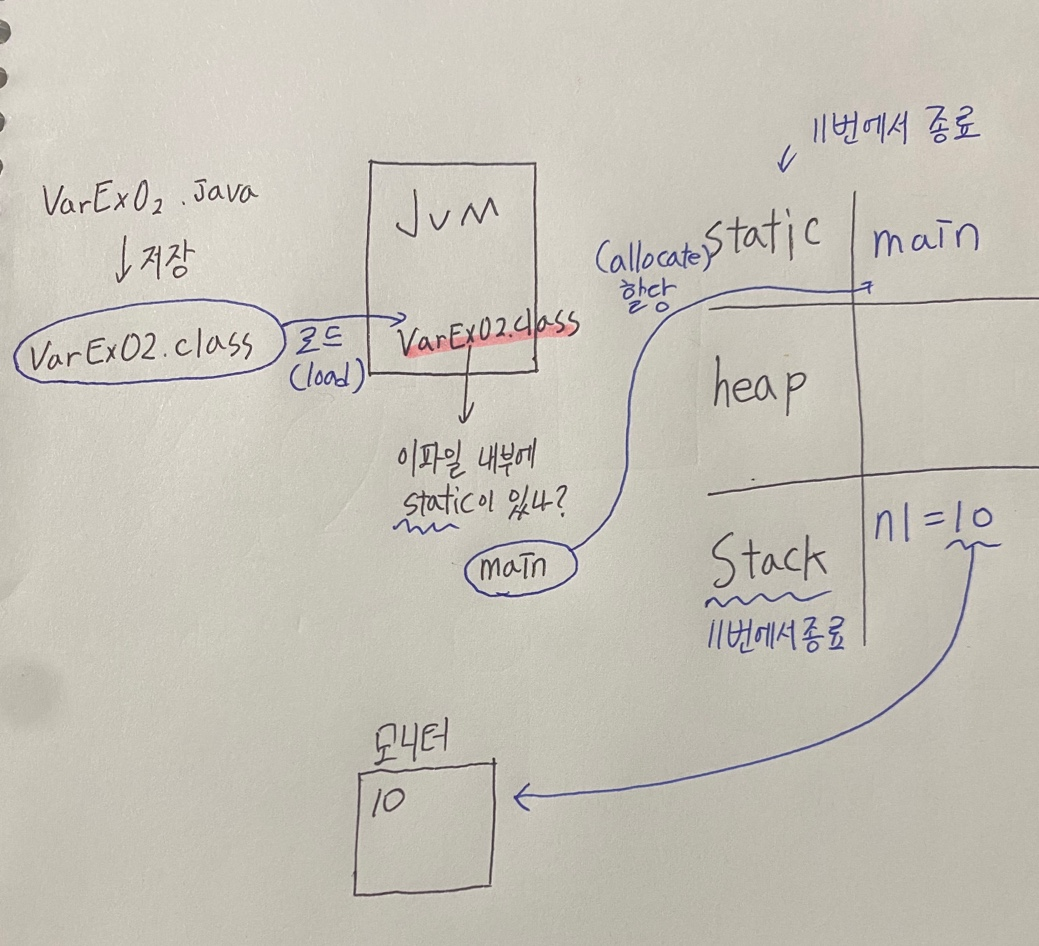 VarEx02.java
저장
VarEx02.class
로드
(load)
JVM
VarEx02.class
이파일 내부에
static이 있나?
main
(allocate)
할당
11번에서 종료
static
main
heap
Stack
n1=10
11번에서종료
모니터
10